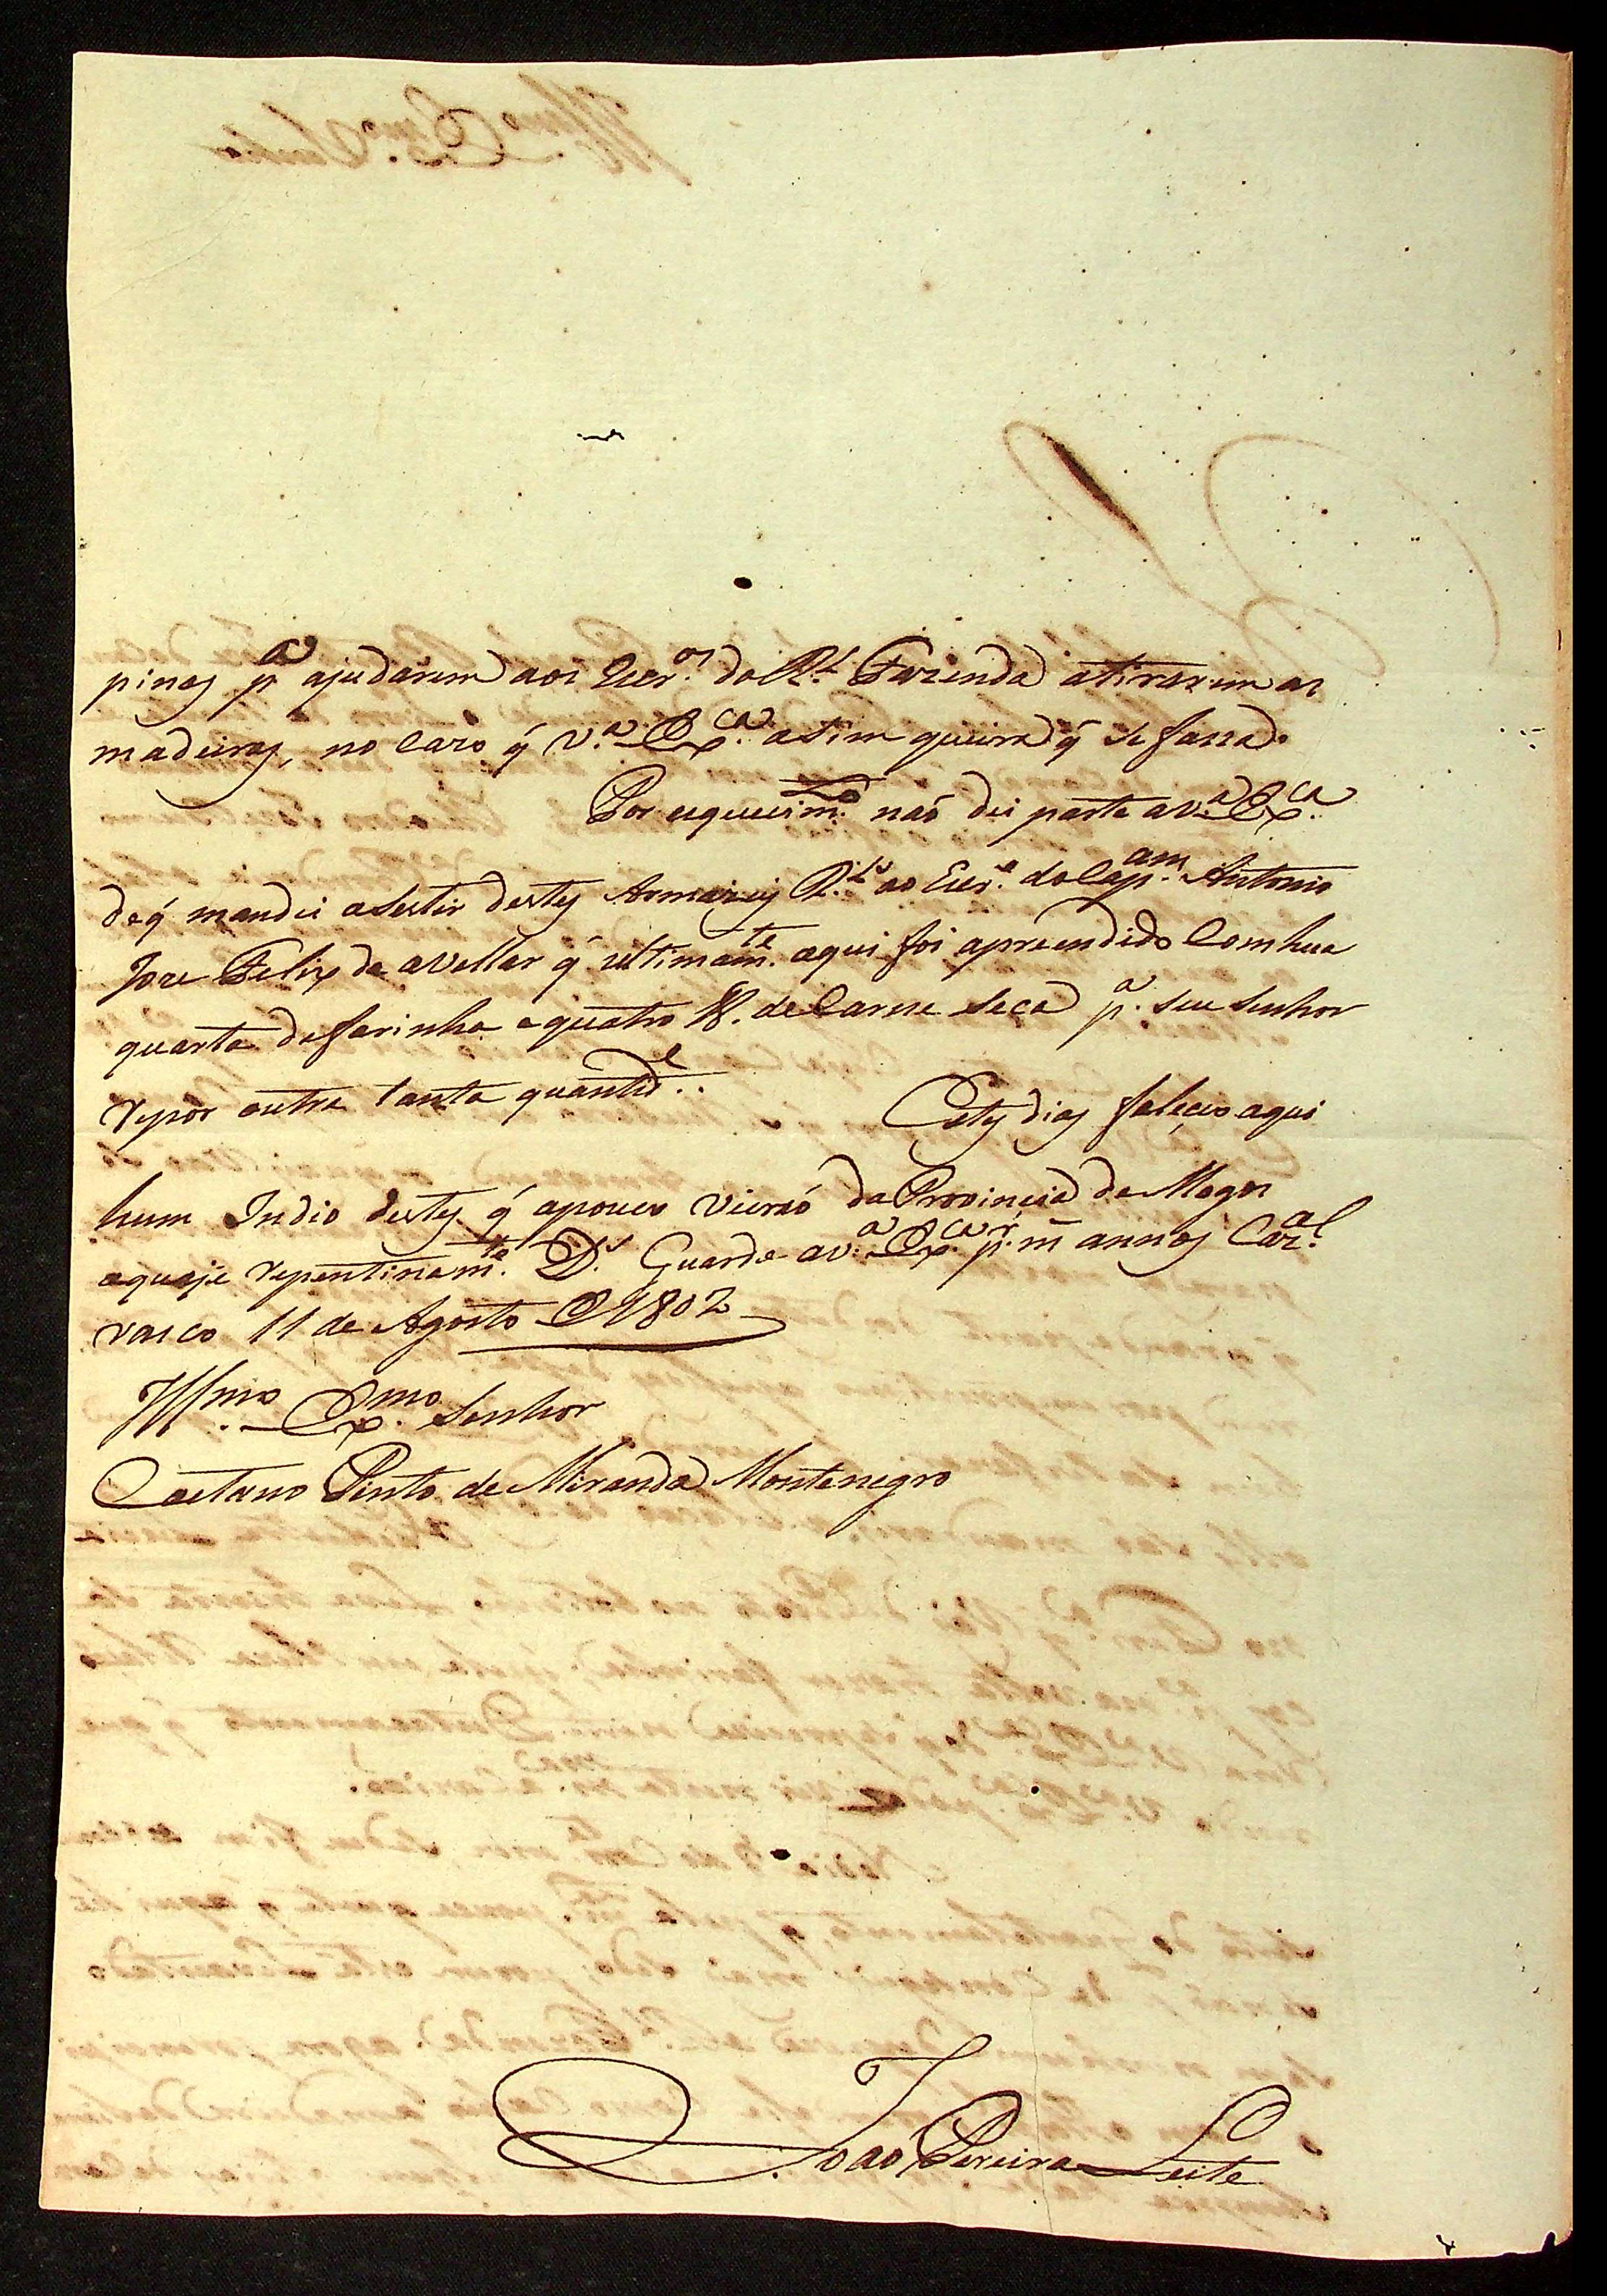 pinas p.ª ajudarem aos Escr.os da R.l Fazenda atirarem as
madeiras, no cazo q̃ V.ª Ex.ca asim queira q̃ se fassa
Por esquecim.to naó dei parte a V.ª Ex.ca
de q̃ mandei asestir destes Armazeis R.s ao Escr.º do Cap.am Antonio
Joze Felix de avellar q̃ ultimam.te aqui foi apreendido Com hua
quarta de farinha e quatro lb. de Carne Seca p.ª seu senhor
repor outra tanta quantid.e.
Estes dias faleceo aqui
hum Indio destes q̃ apouco vieraó da Provincia de Mogos
e quaje repentinam.te D.s Guarde a V.ª Ex.ca p.r m̃ annos Caz.al
vasco 11 de Agosto D 1802
Ill.mo Ex.mo Senhor
Caetano Pinto de Miranda Montenegro
Joaó Pereira Leite